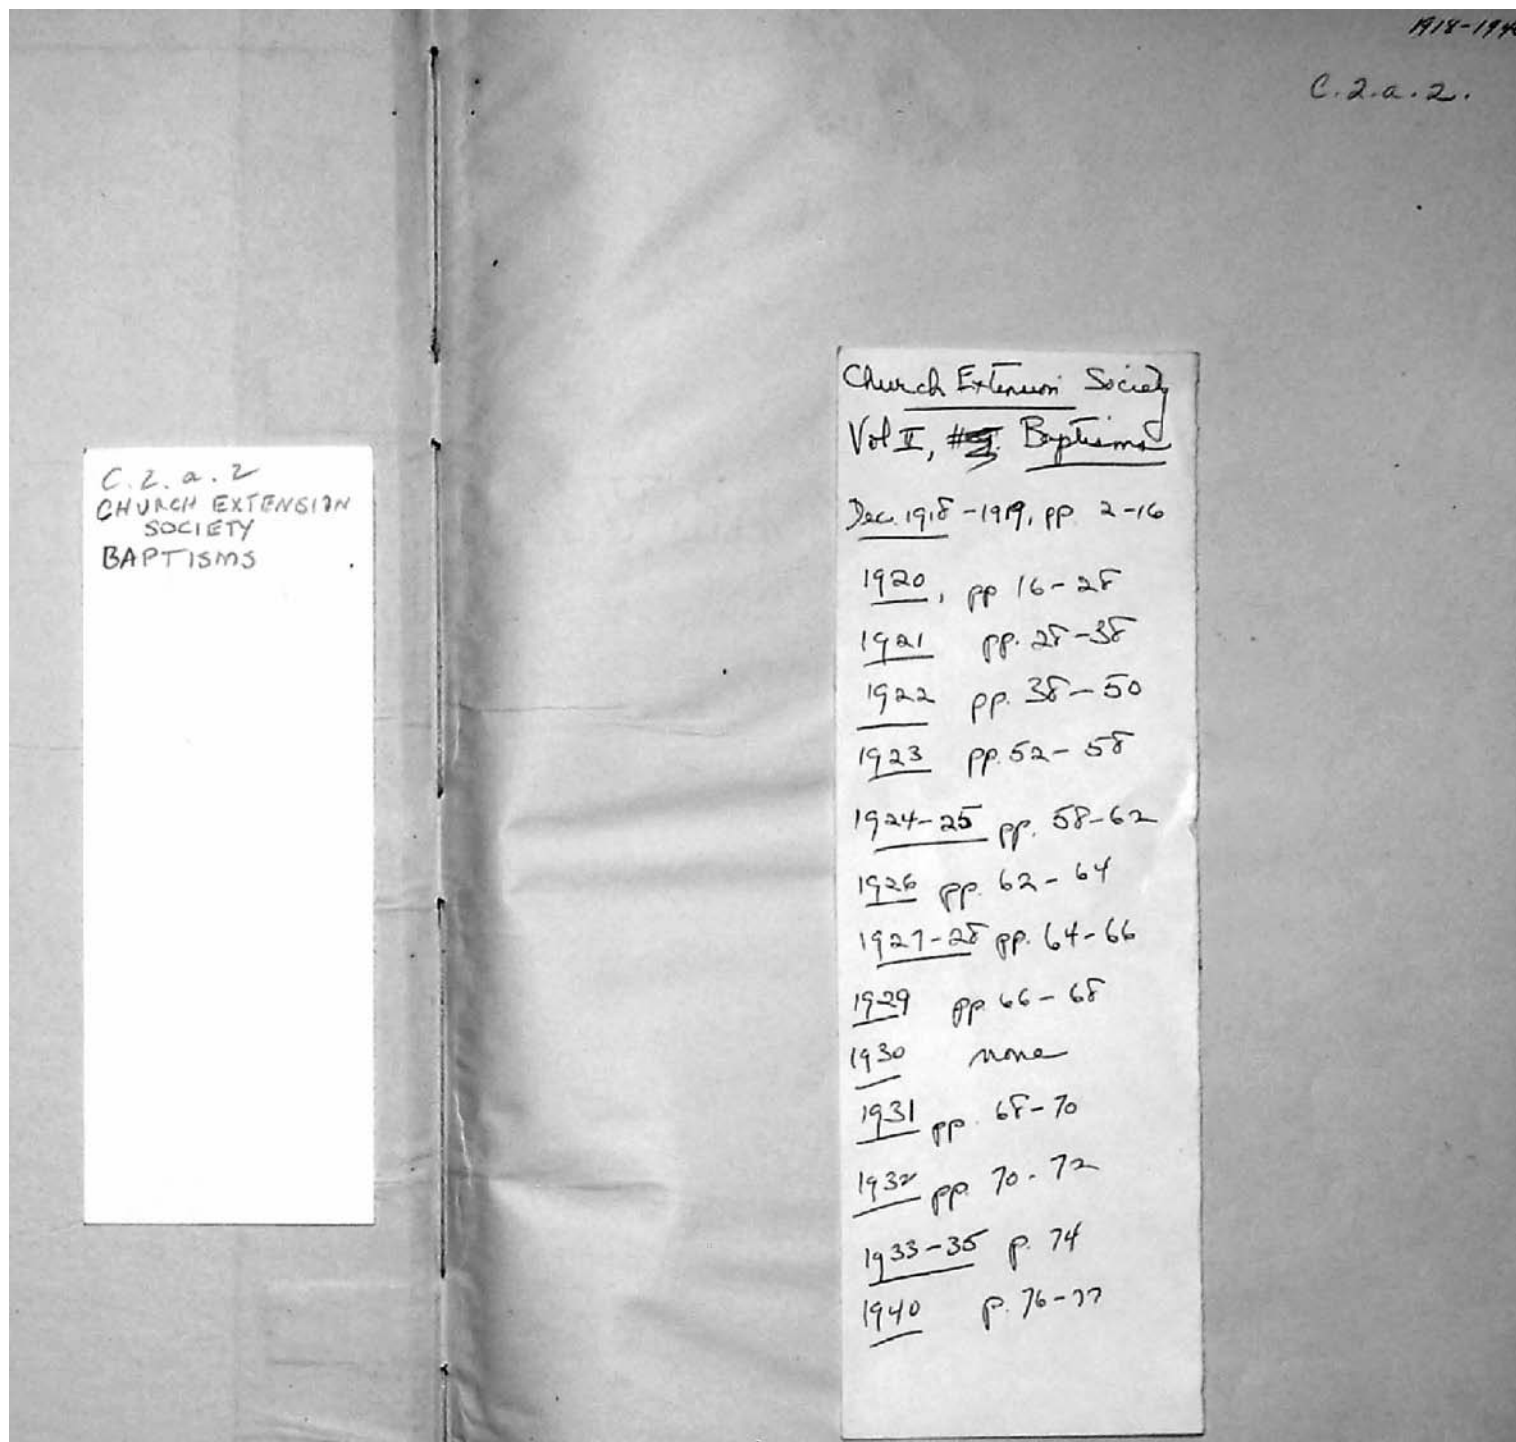 C.2.a.2
CHURCH EXTENSION
SOCIETY
BAPTISMS
C.2.a.2.
Church Extension Society
Vol II, Baptisms
Dec. 1918-1919, pp 2-16
1920, pp 16-28
1921 pp. 28-38
1922 pp. 38-50
1923 pp. 52-58
1924-25 pp. 58-62
1926 pp. 62-64
1927-28 pp. 64-66
1929 pp 66-68
1930 none
1931 pp. 68-70
1932 pp 70-72
1933-35 p. 74
1940 p. 76-77